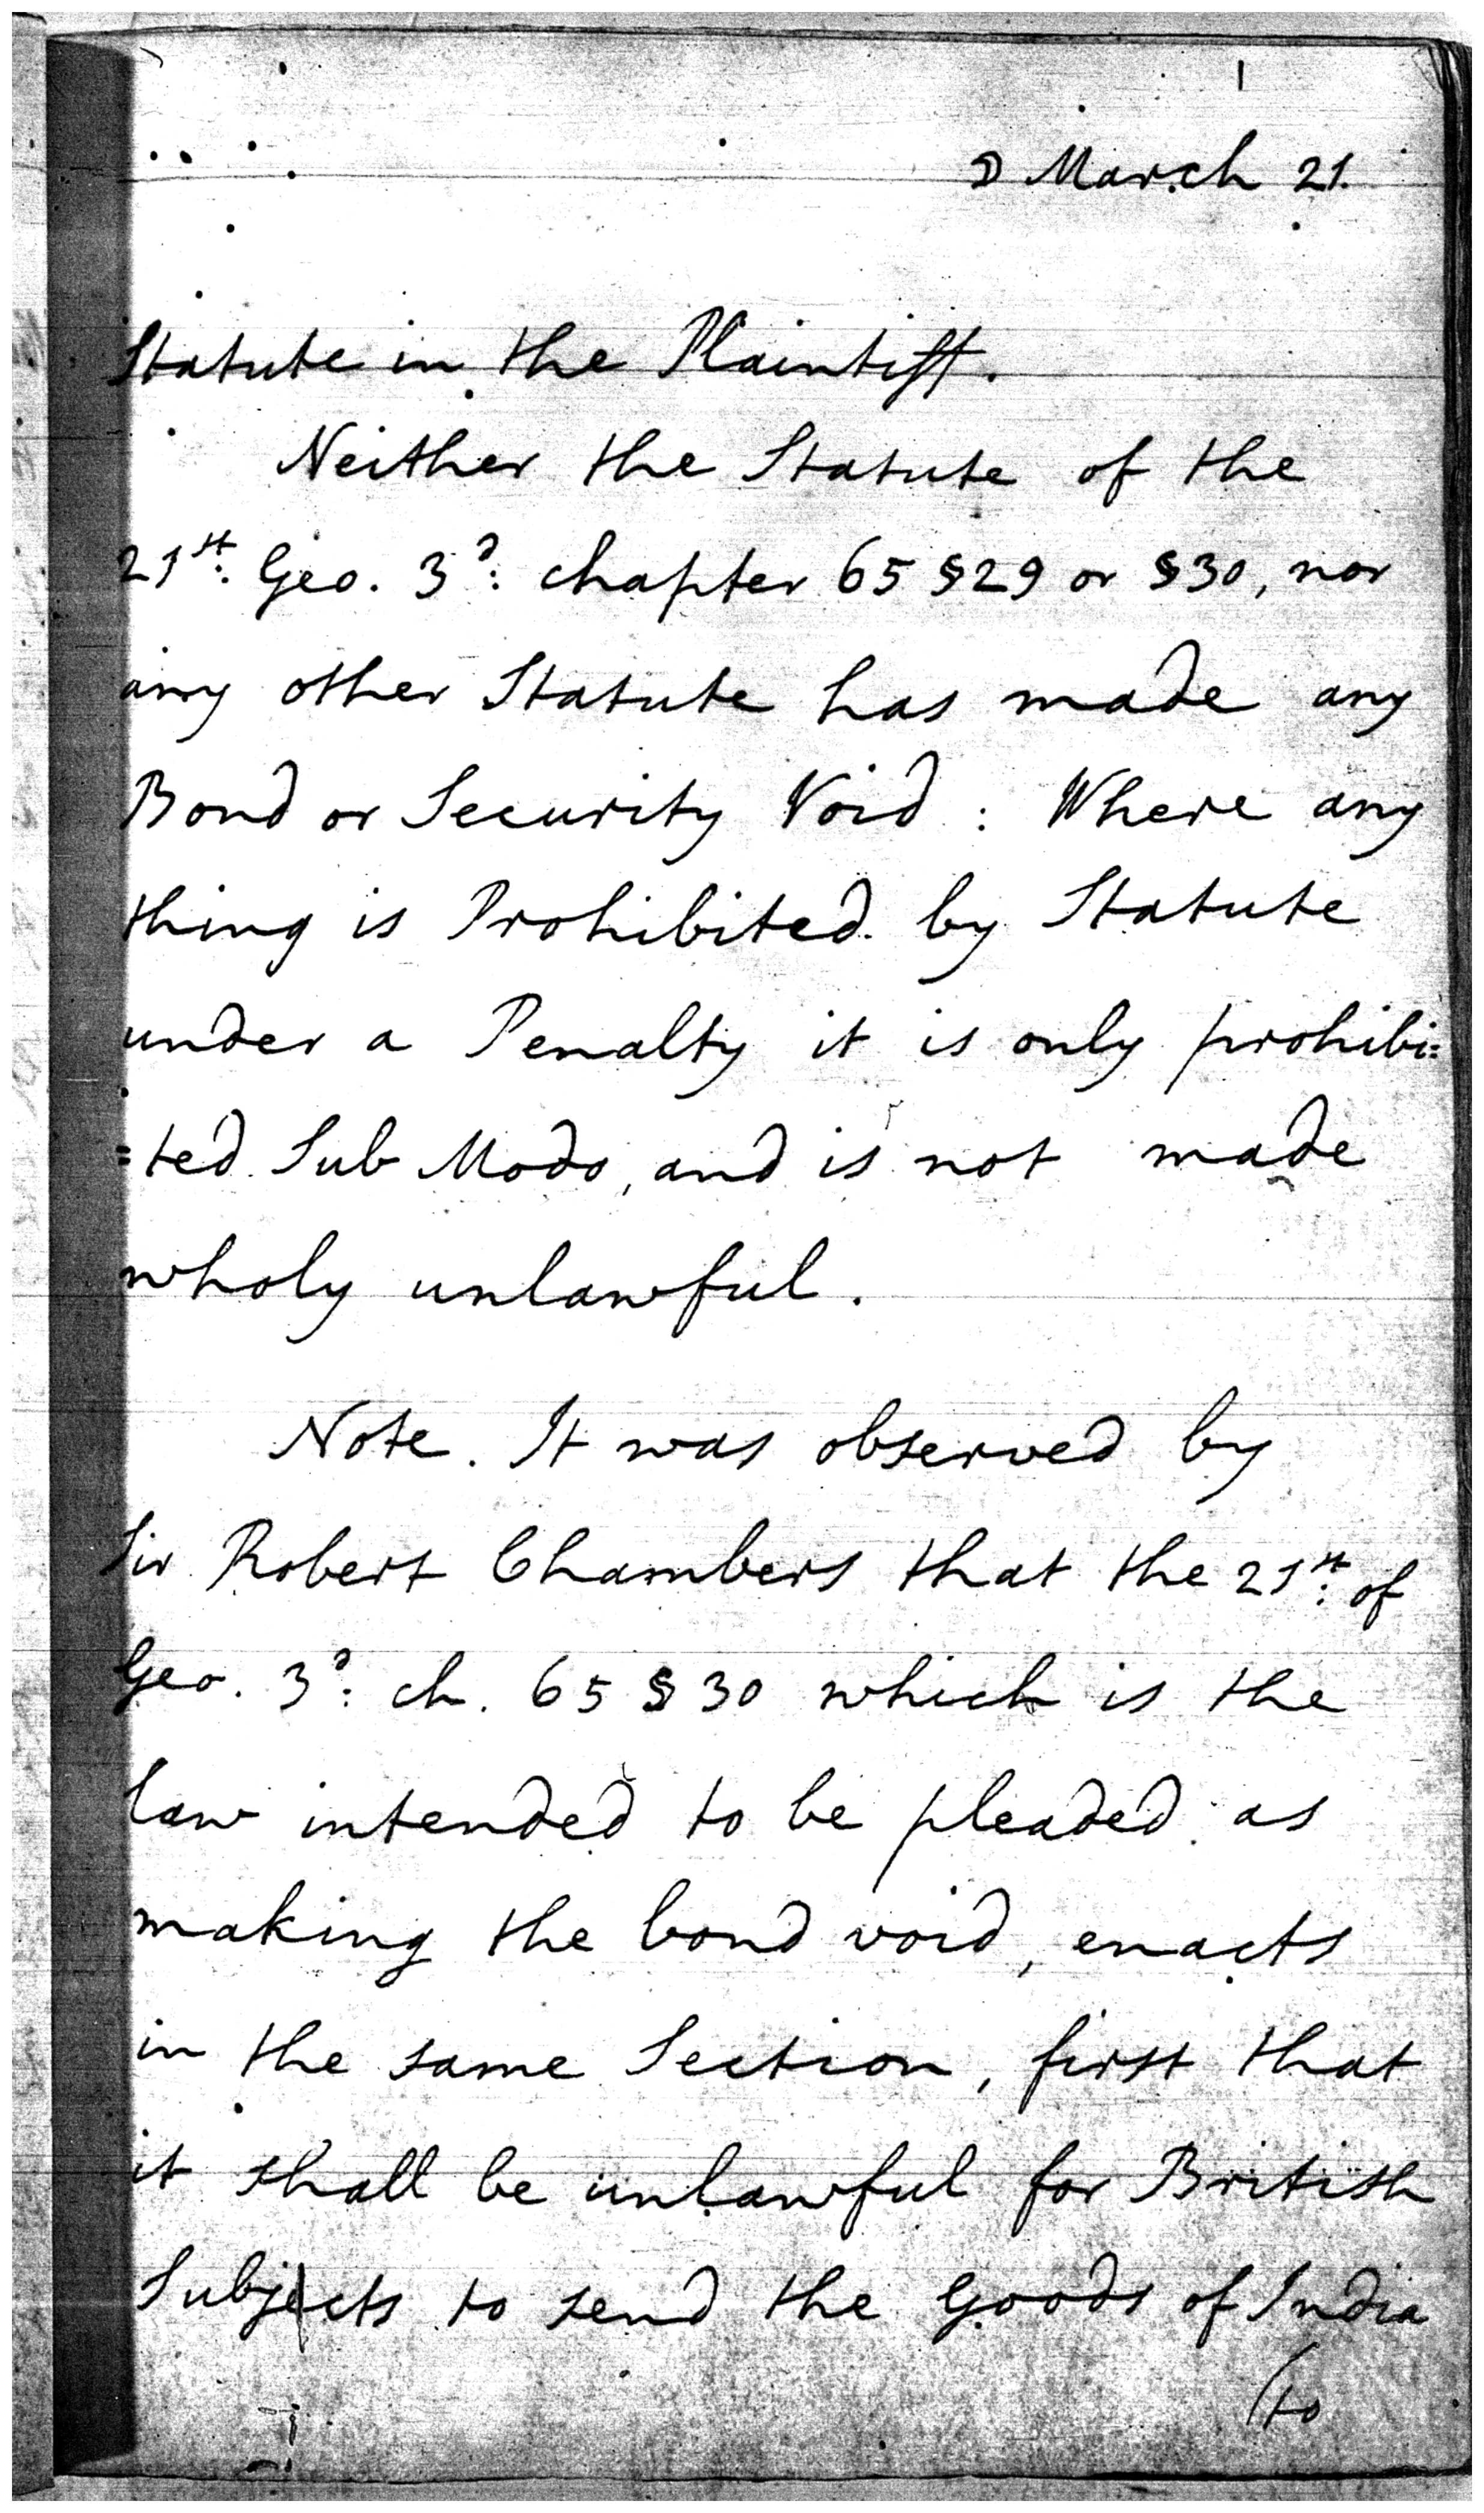 ☽ March 21.
Statute in the Plaintiff.
Neither the Statute of the
21st. Geo. 3d: chapter 65 §29 or §30, nor
any other Statute has made any
Bond or Security Void : Where any
thing is Prohibited by Statute
under a Penalty it is only prohibi=
=ted Sub Modo, and is not made
wholy unlawful.
Note. It was observed by
Sir Robert Chambers that the 21st. of
Geo. 3d: ch. 65 §30 which is the
law intended to be pleaded as
making the bond void, enacts
in the same Section, first that
it shall be unlawful for British
Subjects to send the Goods of India
(to